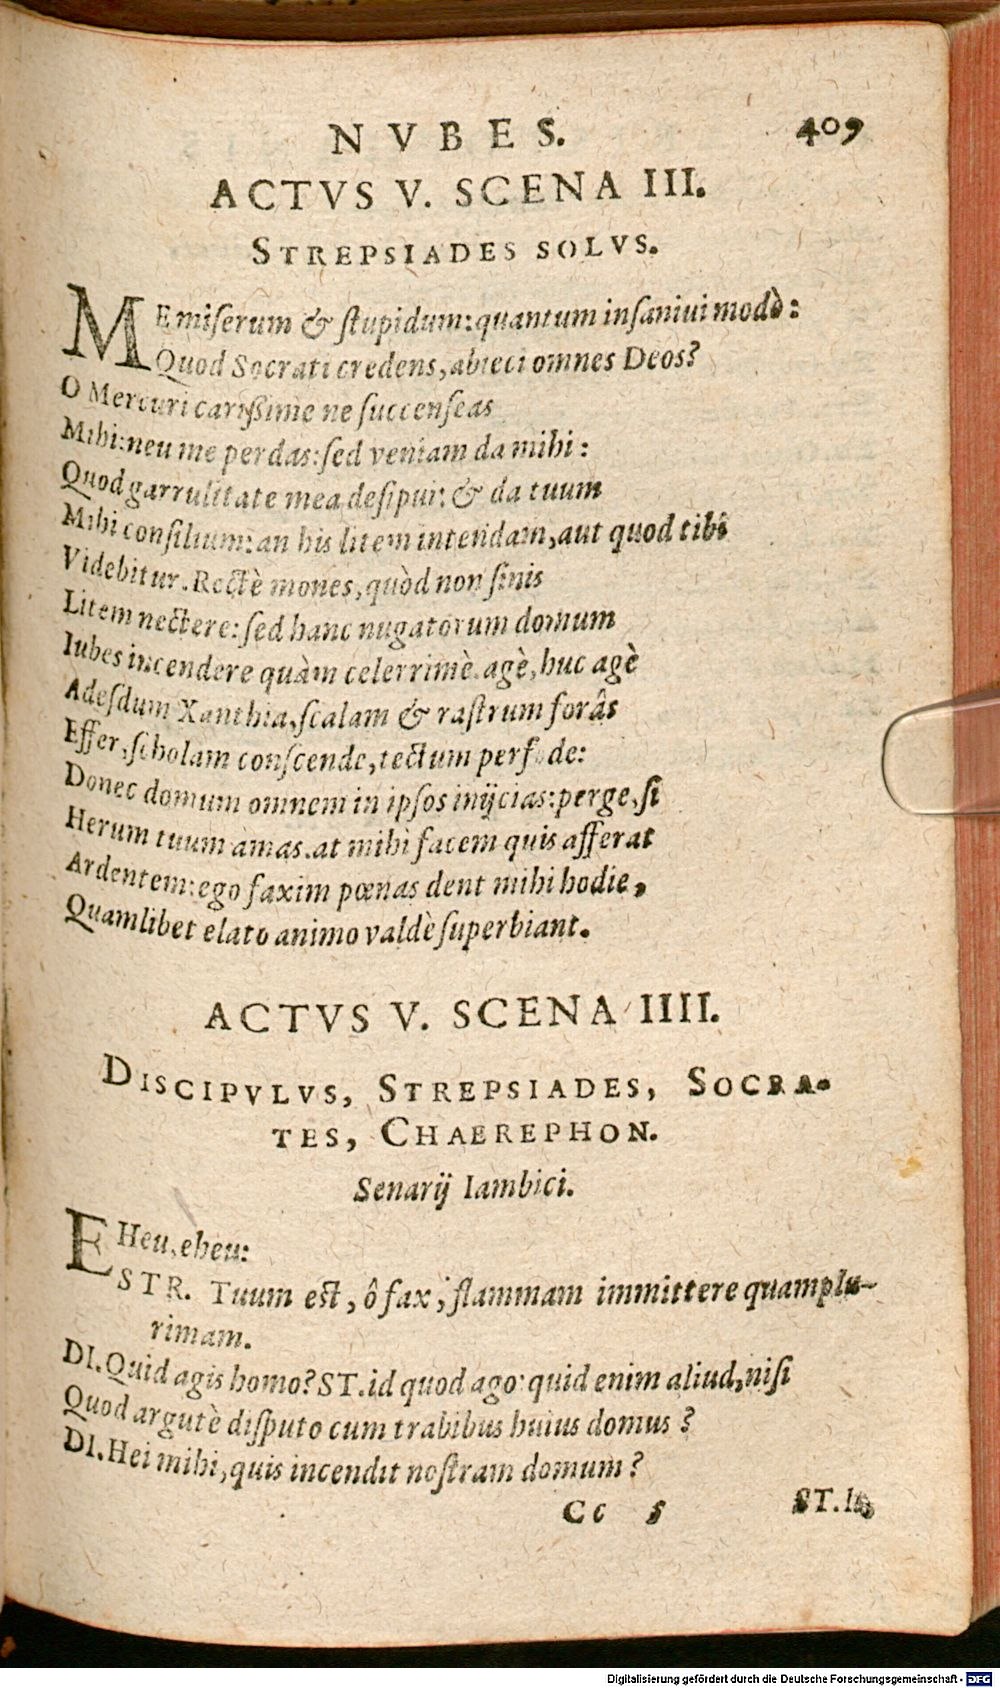 NVBES. 409
ACTVS V. SCENA III.
STREPSIADES SOLVS.
ME miſerum & ſtupidum: quantum inſaniui modò:
Quod Socrati credens, abieci omnes Deos?
O Mercuri cariſſime ne ſuccenſeas
Mihi: neu me perdas: ſed veniam da mihi:
Quod garrulitate mea deſipui: & da tuum
Mihi conſilium: an his litem intendam, aut quod tibi
Videbitur. Rectè mones, quòd non ſinis
Litem nectere: ſed hanc nugatorum domum
Iubes incendere quàm celerrimè. agè, huc agè
Adeſdum Xanthia, ſcalam & raſtrum forâs
Effer, ſcholam conſcende, tectum perfode:
Donec domum omnem in ipſos inijcias: perge, ſi
Herum tuum amas. at mihi facem quis afferat
Ardentem: ego faxim pœnas dent mihi hodie,
Quamlibet elato animo valdè ſuperbiant.
ACTVS V. SCENA IIII.
DISCIPVLVS, STREPSIADES, SOCRA-
TES, CHAEREPHON.
Senarij Iambici.
EHeu, eheu:
STR. Tuum eſt, ô fax, flammam immittere quamplu-
rimam.
DI. Quid agis homo? ST. id quod ago: quid enim aliud, niſi
Quod argutè diſputo cum trabibus huius domus?
DI. Hei mihi, quis incendit noſtram domum?
Cc 5 ST.
Digitalisierung gefördert durch die Deutsche Forschungsgemeinschaft - DFG